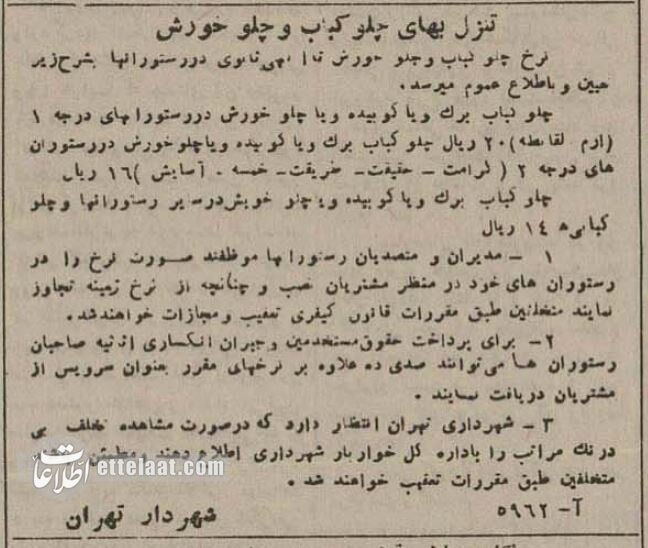 تنزل بهای چلو کباب و چلو خورش
نرخ چلو کباب و چلو خورش تا آگهی ثانوی در رستورانها بشرح زیر
تعیین و باطلاع عموم میرسد.
چلو کباب برك و یا کوبیده و یا چلو خورش در رستورانهای درجه ۱
(ارم لقانطه) ۲۰ ریال چلو کباب برك و یا کوبیده و یا چلو خورش در رستوران
های درجه ۲ ( کرامت - حقیقت - طریقت - خمسه - آسایش ) ۱۶ ریال
چلو کباب برك و یا کوبیده و یا چلو خورش در سایر رستورانها و چلو
کبابی‌ها ۱۴ ریال
۱ - مدیران و متصدیان رستورانها موظفند صورت نرخ را در
رستوران های خود در منظر مشتریان نصب و چنانچه از نرخ زمینه تجاوز
نمایند متخلفین طبق مقررات قانون کیفری تعقیب و مجازات خواهند شد.
۲- برای پرداخت حقوق مستخدمین و جبران انکساری اثاثیه صاحبان
رستوران ها می‌توانند صدی ده علاوه بر نرخهای مقرر بعنوان سرویس از
مشتریان دریافت نمایند.
۳ - شهرداری تهران انتظار دارد که در صورت مشاهده تخلف بی
درنك مراتب را باداره کل خواربار شهرداری اطلاع دهند و مطمئن
متخلفین طبق مقررات تعقیب خواهند شد.
آ- ۵۹۶۲
شهردار تهران
اطلاعات ettelaat.com